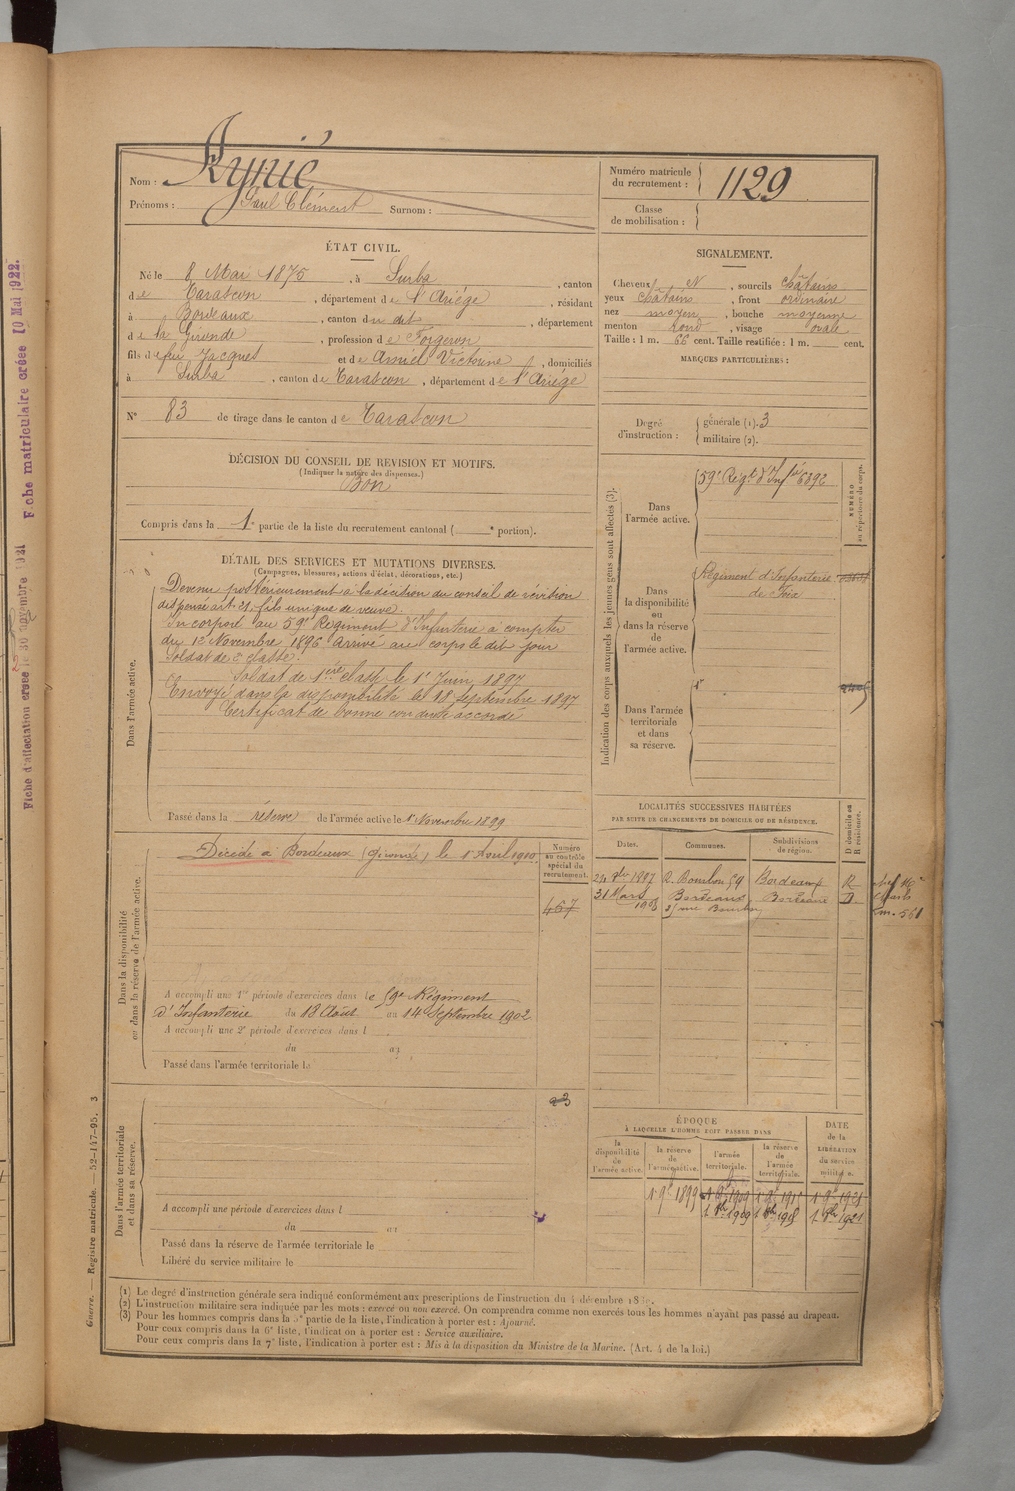 Nom : Aynié
Prénoms : Paul Clément Surnom :
Numéro matricule du recrutement : 1129
Classe de mobilisation :
ÉTAT CIVIL.
Né le 8 Mai 1875, à Surba, canton
de Tarascon, département de l'Ariége, résidant
à Bordeaux, canton du dit, département
de la Gironde, profession de Forgeron
fils de feu Jacques et de Amiel Victorine, domiciliés
à Surba, canton de Tarascon, département de l'Ariége
N° 83 de tirage dans le canton de Tarascon
DÉCISION DU CONSEIL DE REVISION ET MOTIFS.
(Indiquer la nature des dispenses.)
Bon
Compris dans la 1e partie de la liste du recrutement cantonal ( e portion).
SIGNALEMENT.
Cheveux N, sourcils châtains
yeux châtains, front ordinaire
nez moyen, bouche moyenne
menton rond, visage ovale
Taille : 1 m. 66 cent. Taille rectifiée : 1 m. cent.
MARQUES PARTICULIÈRES :
Degré d'instruction : générale (1). 3
militaire (2).
DÉTAIL DES SERVICES ET MUTATIONS DIVERSES.
(Campagnes, blessures, actions d'éclat, décorations, etc.)
Dans l'armée active.
Devenu postérieurement à la décision du conseil de révision
dispensé art. 21, fils unique de veuve.
Incorporé au 59e Régiment d'Infanterie à compter
du Novembre 1896 Arrivé au corps le dit jour
Soldat de 2e classe.
Soldat de 1ère classe le 1er Juin 1897
Envoyé dans la disponibilité le 18 septembre 1897
Certificat de bonne conduite accordé
Passé dans la réserve de l'armée active le 1er Novembre 1899
Indication des corps auxquels les jeunes gens sont affectés (3).
NUMÉRO au répertoire du corps.
Dans l'armée active.
59e Régt d'Infie 6892
Dans la disponibilité ou dans la réserve de l'armée active.
Régiment d'Infanterie
de Foix
Dans l'armée territoriale et dans sa réserve.
LOCALITÉS SUCCESSIVES HABITÉES
PAR SUITE DE CHANGEMENTS DE DOMICILE OU DE RÉSIDENCE.
Dates. Communes. Subdivisions de région. D domicile ou R résidence.
1897 R. Bourbon 59 Bordeaux R
31 Mars 1908 Bordeaux Bordeaux D
rue Bourbon
Dans la disponibilité ou dans la réserve de l'armée active.
Décédé à Bordeaux (Gironde) le 1er Avril 1910.
Numéro au contrôle spécial du recrutement.
467
A accompli une 1re période d'exercices dans le 59e Régiment
d'Infanterie du 18 Août au 14 Septembre 1902
A accompli une 2e période d'exercices dans l
du au
Passé dans l'armée territoriale le
Dans l'armée territoriale et dans sa réserve.
A accompli une période d'exercices dans l
du au
Passé dans la réserve de l'armée territoriale le
Libéré du service militaire le
ÉPOQUE
À LAQUELLE L'HOMME DOIT PASSER DANS
la disponibilité de l'armée active.
la réserve de l'armée active.
l'armée territoriale.
la réserve de l'armée territoriale.
DATE de la LIBÉRATION du service militaire.
1er 9bre 1899 1er 9bre 1909 1er 9bre 1915 1er 9bre 1921
(1) Le degré d'instruction générale sera indiqué conformément aux prescriptions de l'instruction du 4 décembre
(2) L'instruction militaire sera indiquée par les mots : exercé ou non exercé. On comprendra comme non exercés tous les hommes n'ayant pas passé au drapeau.
(3) Pour les hommes compris dans la 5e partie de la liste, l'indication à porter est : Ajourné.
Pour ceux compris dans la 6e liste, l'indication à porter est : Service auxiliaire.
Pour ceux compris dans la 7e liste, l'indication à porter est : Mis à la disposition du Ministre de la Marine. (Art. 4 de la loi.)
Guerre. — Registre matricule. — 52-147-95. 3
Fiche d'affectation créée le 30 novembre 1921
Fiche matriculaire créée 10 Mai 1922.